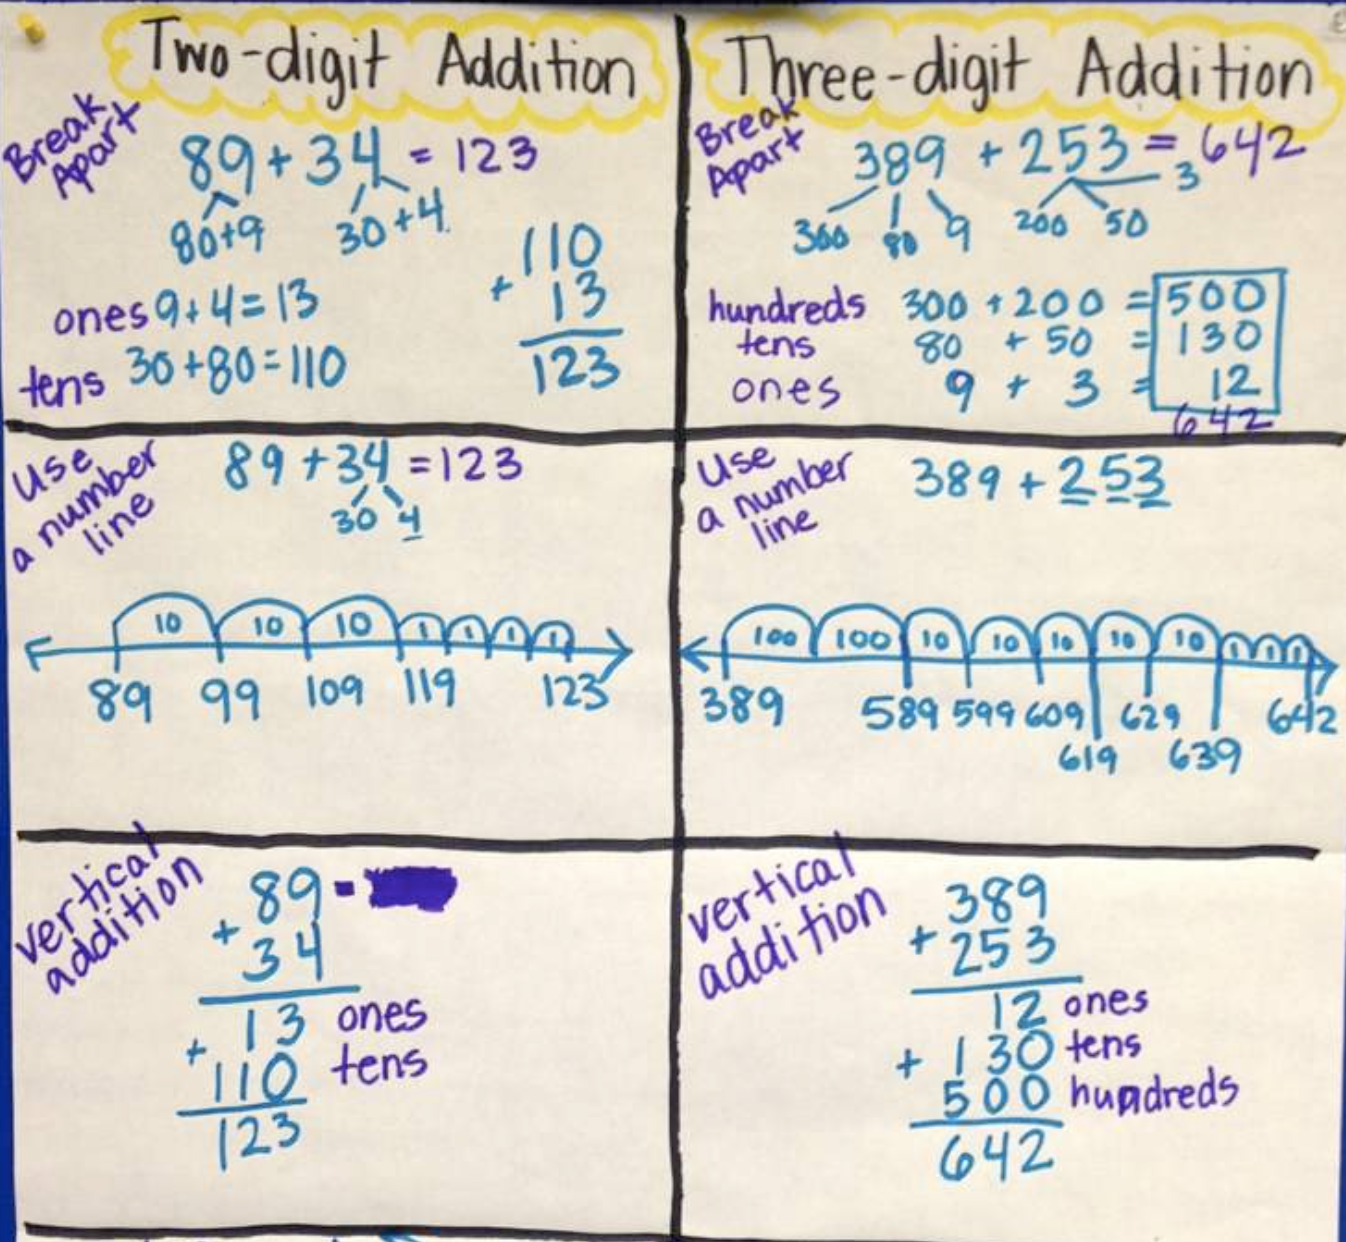 Two-digit Addition
Break Apart
89 + 34 = 123
80+9 30+4
ones 9+4=13
tens 30+80=110
110
+ 13
123
Three-digit Addition
Break Apart
389 + 253 = 642
300 80 9 200 50 3
hundreds 300 + 200 = 500
tens 80 + 50 = 130
ones 9 + 3 = 12
642
Use a number line
89 + 34 = 123
30 4
10 10 10 1 1 1 1
89 99 109 119 123
Use a number line
389 + 253
100 100 10 10 10 10 10 1 1 1
389 589 599 609 629 642
619 639
vertical addition
89 =
+ 34
13 ones
+ 110 tens
123
vertical addition
389
+ 253
12 ones
+ 130 tens
500 hundreds
642